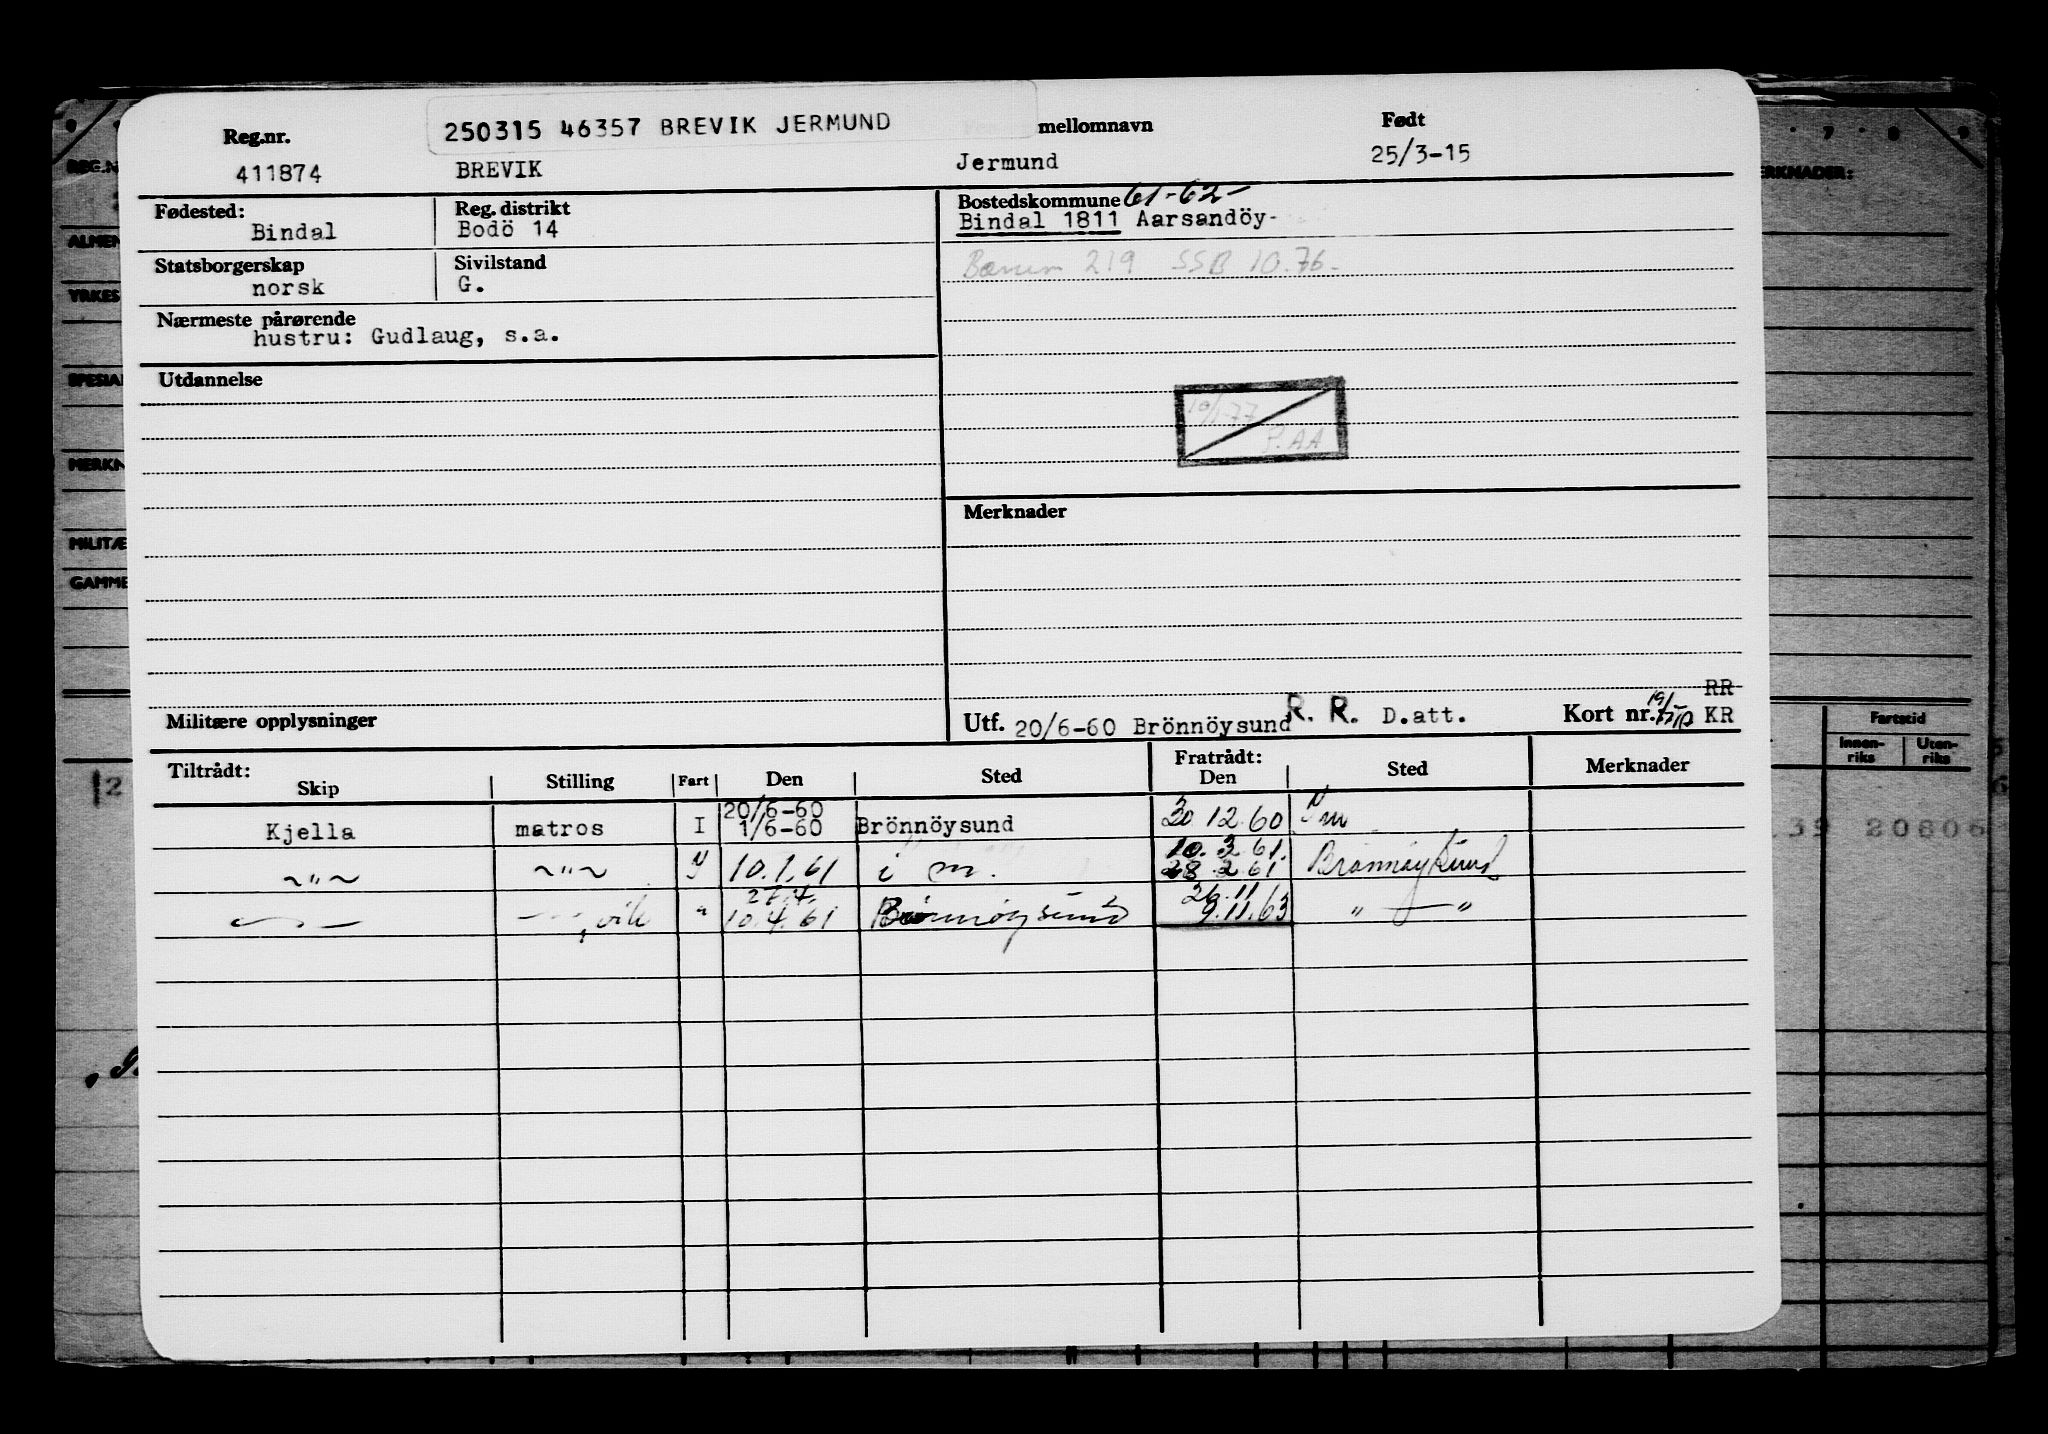 250315 46357 BREVIK JERMUND
Reg.nr. mellomnavn Født
411874 BREVIK Jermund 25/3-15
Fødested: Reg. distrikt Bostedskommune 61-62-
Bindal Bodö 14 Bindal 1811 Aarsandöy-
Statsborgerskap Sivilstand 219 SSB 10.76.
norsk G.
Nærmeste pårørende
hustru: Gudlaug, s.a.
Utdannelse
P.AA
Merknader
Militære opplysninger Utf. 20/6-60 Brönnöysund R. R. D.att. Kort nr. RR KR
Tiltrådt: Fratrådt:
Skip Stilling Fart Den Sted Den Sted Merknader
20/6-60
Kjella matros I 1/6-60 Brönnöysund 30.12.60
10.3.61.
~"~ ~"~ 10.1.61 i m. 28.2.61 Brönnöysund
27.4. 26.11
10.4.61 Brönnöysund 9.11.63 " — "
REG.N
ALMEN
YRKES
SPESIAL
MERKN
MILITÆ
GAMME
7 8 9
ERKNADER:
Fartstid
Innen-riks Uten-riks
39 20806